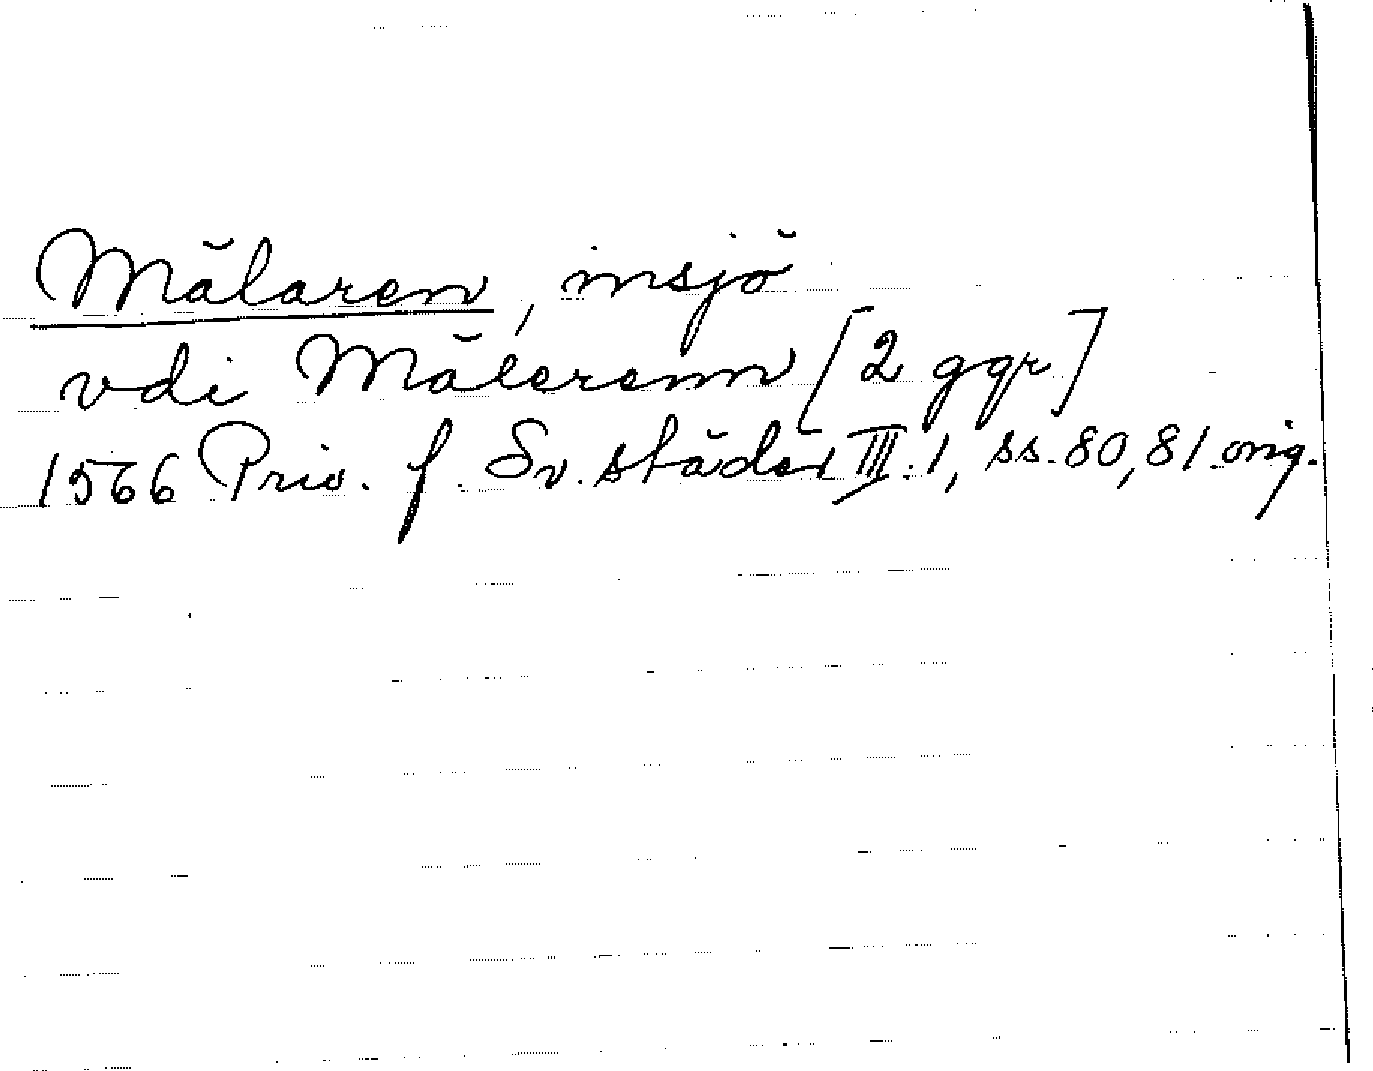 Mälaren, insjö
vdi Mälerenn [2 ggr]
1566 Priv. f. Sv. städer III:1, ss. 80, 81 orig.